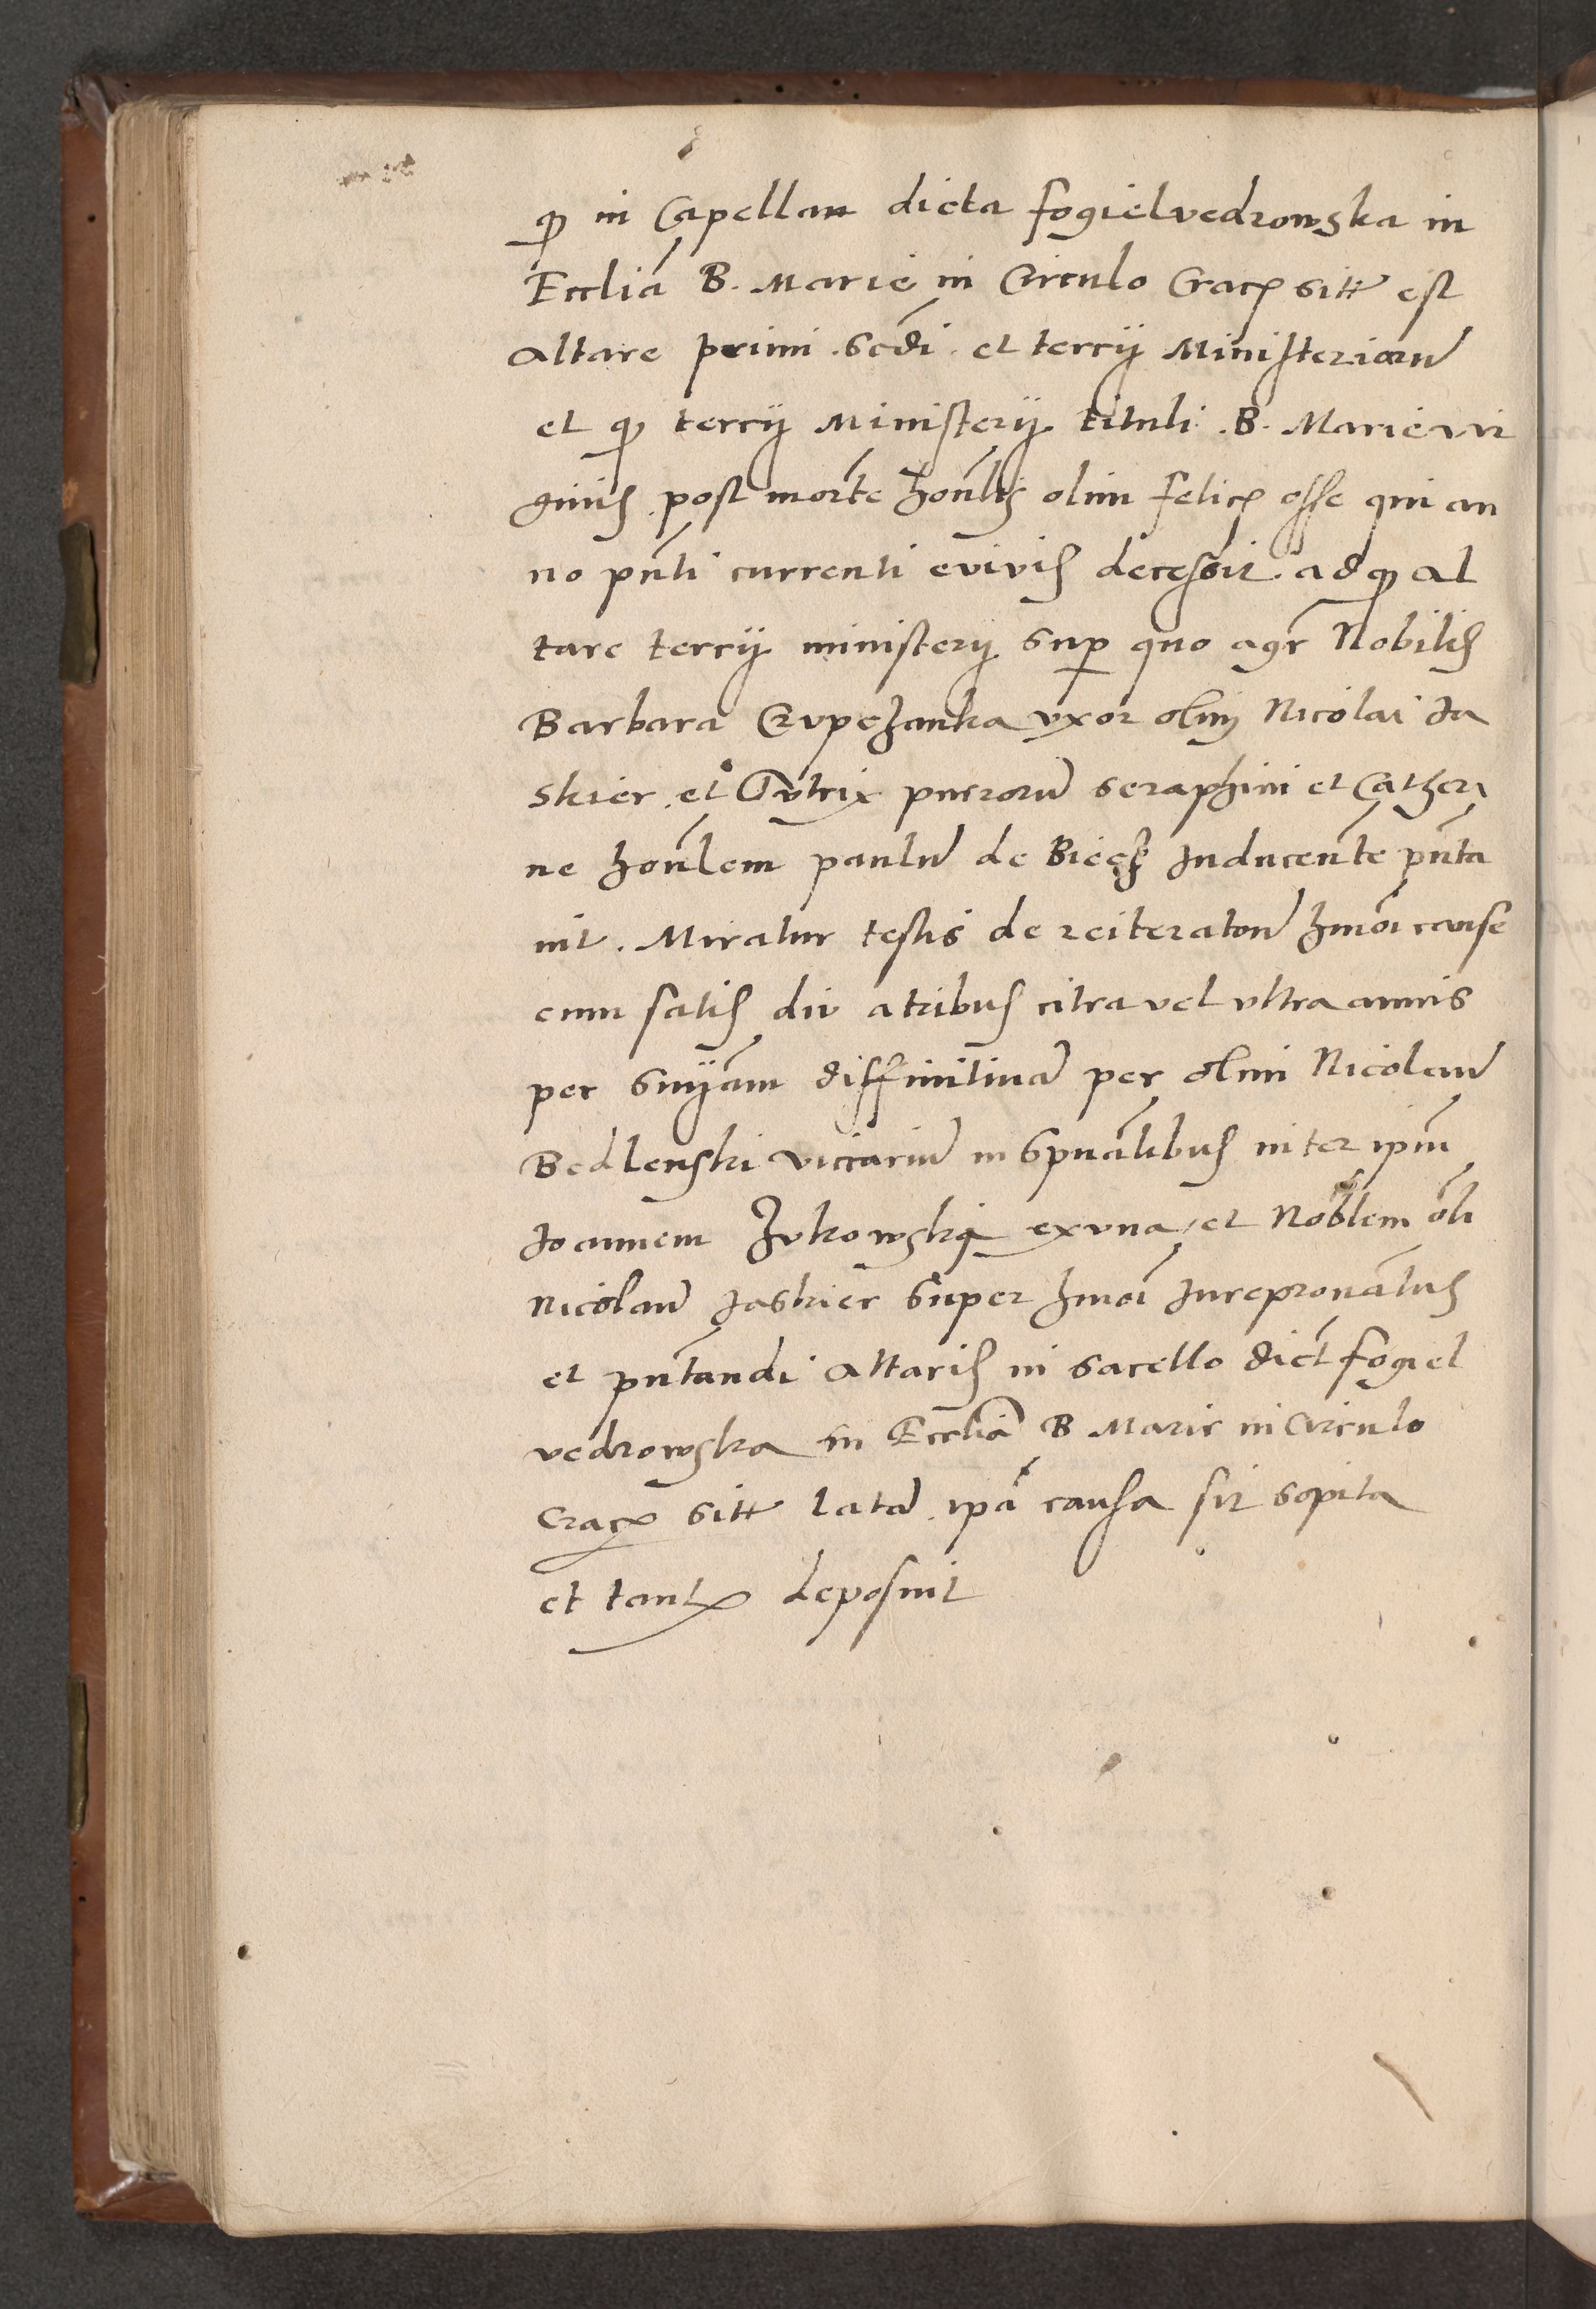 ꝙ in Capellan dicta Fogielvedrowska in
Eccliā B. Marie in Circulo Cracꝫ sitt est
Altare primi .scđi. et tercij Ministeriorū
et ꝙ tercij Ministerij tituli .B. Marie vir
ginis post morte honlis olim Felicꝫ osse qui an
no pn̄ti currenti evivis decessit. ad ꝙ al
tare tercij ministerij sup quo agr̄ Nobilis
Barbara Crvpeẓanka vxor olim Nicolai Ja
skier et Tvtrix puerorū Seraphini et Catheri
ne honlem paulū de Biecz Inducente pn̄ta
uit. Miratur testis de reiteratōne hmōi cause
cum satis div a tribus citra vel vltra annis
per snījam diffinitiuā per olim Nicolaum
Bedlenski viccariū in Spūalibus inter ipm̄
Joannem Zvkowskj ex vna et Noblem oli
Nicolaū Jaskier super hmōi Jurepronatus
et pn̄tandi altaris in sacello dict Fogiel
vedrowska in Eccliā B Marie in Circulo
Cracꝫ sitt latā ipā causa sit sopita
et tantꝫ deposuit